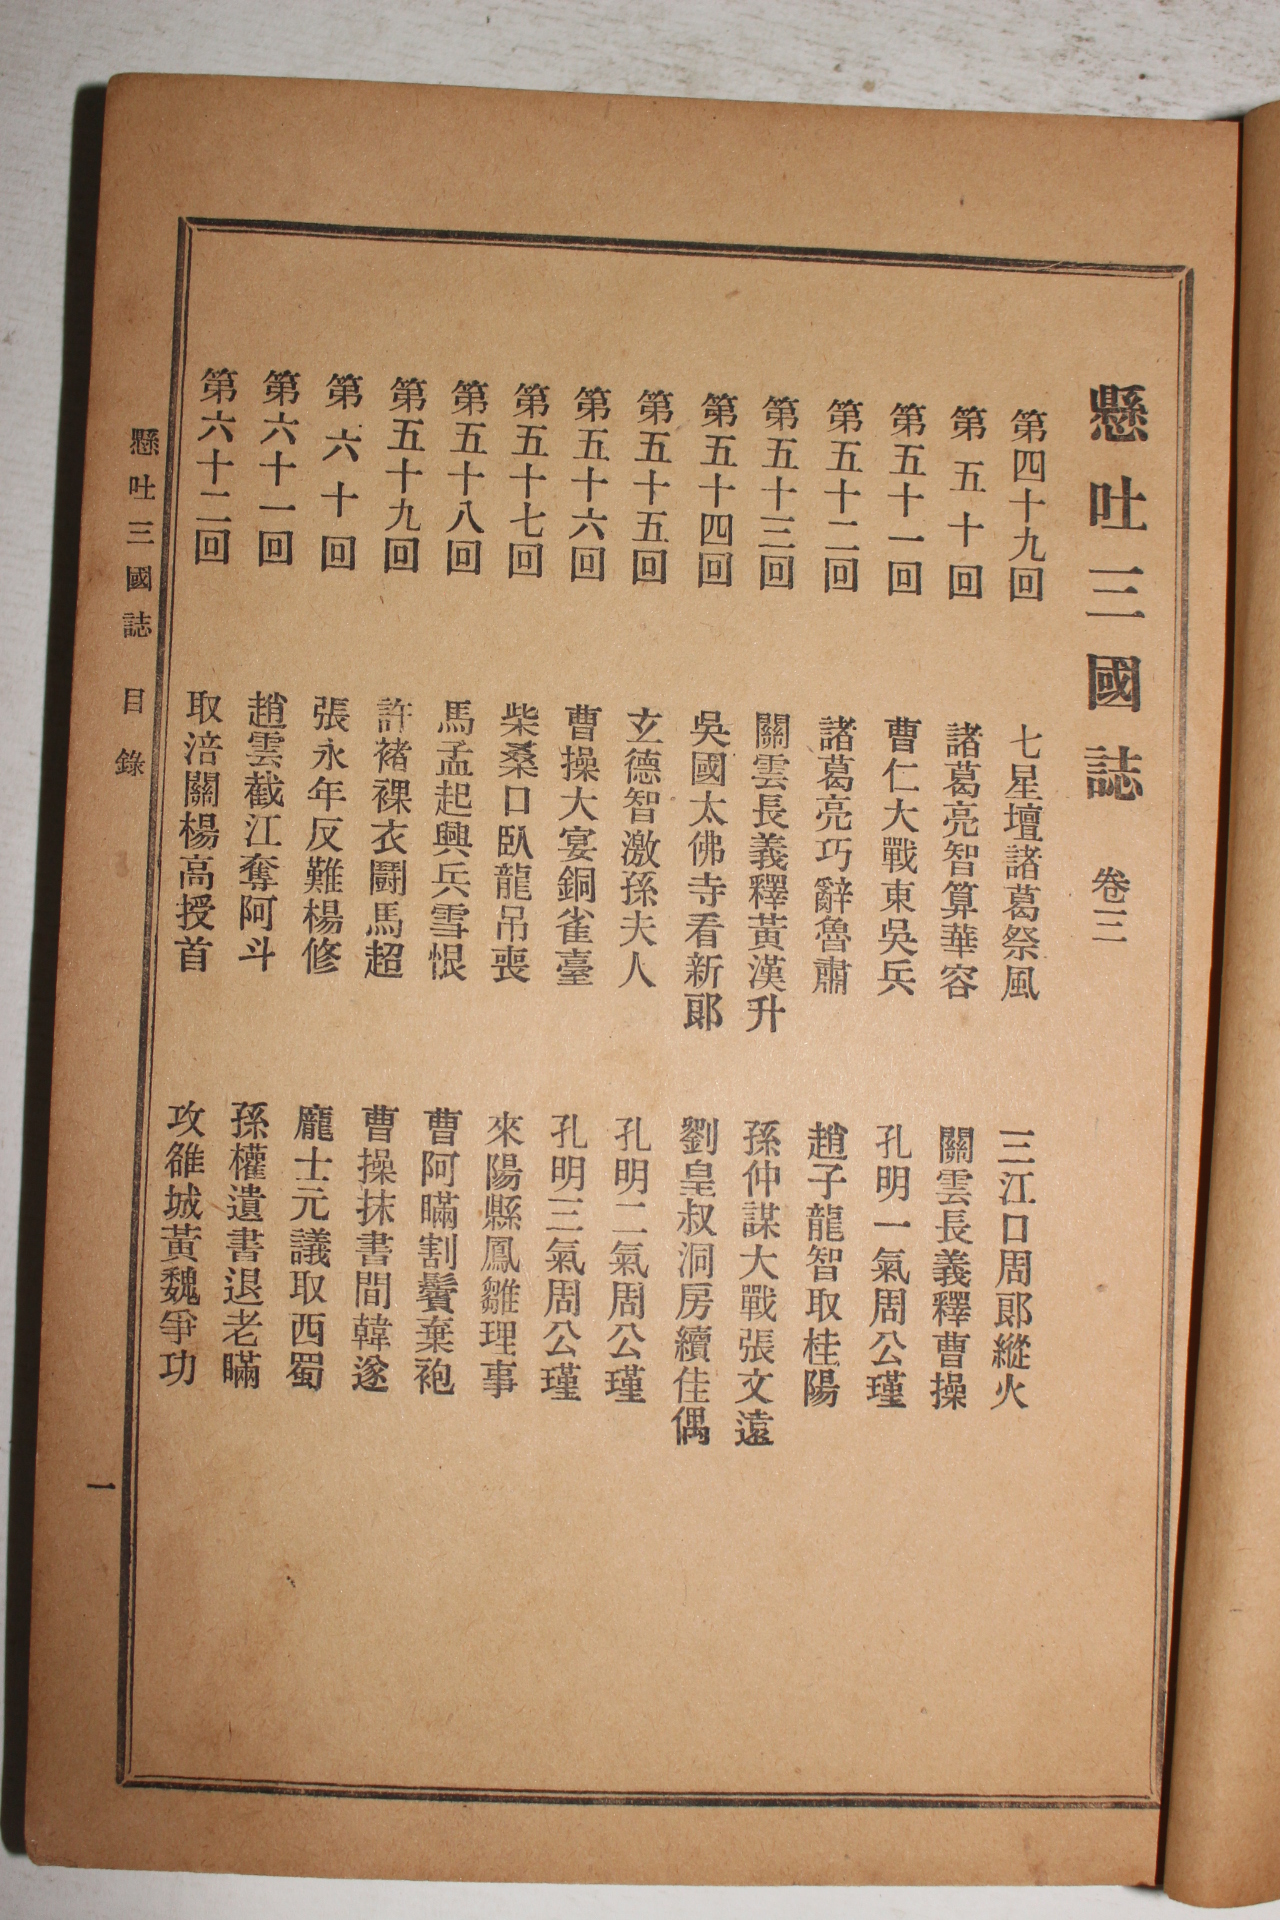 懸吐三國誌 卷三
第四十九回 七星壇諸葛祭風 三江口周郞縱火
第五十回 諸葛亮智算華容 關雲長義釋曹操
第五十一回 曹仁大戰東吳兵 孔明一氣周公瑾
第五十二回 諸葛亮巧辭魯肅 趙子龍智取桂陽
第五十三回 關雲長義釋黃漢升 孫仲謀大戰張文遠
第五十四回 吳國太佛寺看新郞 劉皇叔洞房續佳偶
第五十五回 玄德智激孫夫人 孔明二氣周公瑾
第五十六回 曹操大宴銅雀臺 孔明三氣周公瑾
第五十七回 柴桑口臥龍吊喪 來陽縣鳳雛理事
第五十八回 馬孟起興兵雪恨 曹阿瞞割鬚棄袍
第五十九回 許褚裸衣鬪馬超 曹操抹書間韓遂
第六十回 張永年反難楊修 龐士元議取西蜀
第六十一回 趙雲截江奪阿斗 孫權遺書退老瞞
第六十二回 取涪關楊高授首 攻雒城黃魏爭功
懸吐三國誌 目錄
一